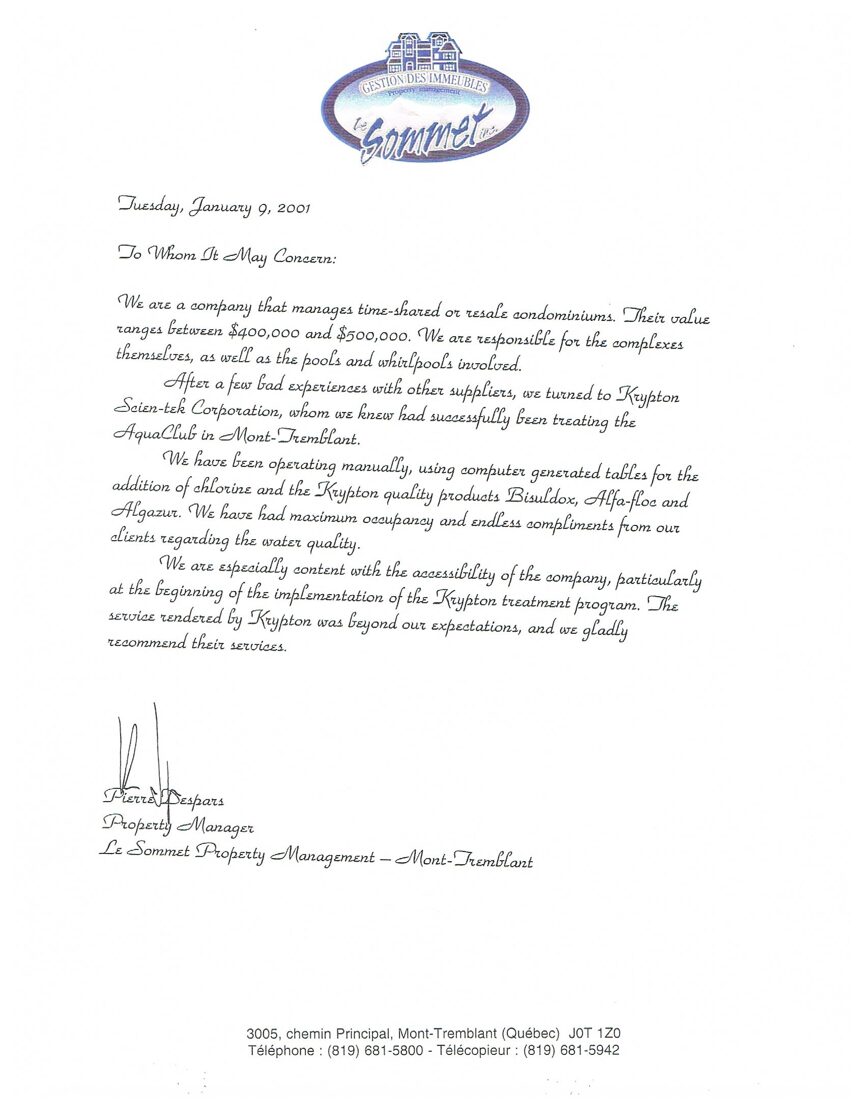 GESTION DES IMMEUBLES
Property management
Le Sommet inc.
Tuesday, January 9, 2001
To Whom It May Concern:
We are a company that manages time-shared or resale condominiums. Their value
ranges between $400,000 and $500,000. We are responsible for the complexes
themselves, as well as the pools and whirlpools involved.
After a few bad experiences with other suppliers, we turned to Krypton
Scien-tek Corporation, whom we knew had successfully been treating the
AquaClub in Mont-Tremblant.
We have been operating manually, using computer generated tables for the
addition of chlorine and the Krypton quality products Bisuldox, Alfa-floc and
Algazur. We have had maximum occupancy and endless compliments from our
clients regarding the water quality.
We are especially content with the accessibility of the company, particularly
at the beginning of the implementation of the Krypton treatment program. The
service rendered by Krypton was beyond our expectations, and we gladly
recommend their services.
Pierre Despars
Property Manager
Le Sommet Property Management – Mont-Tremblant
3005, chemin Principal, Mont-Tremblant (Québec) J0T 1Z0
Téléphone : (819) 681-5800 - Télécopieur : (819) 681-5942